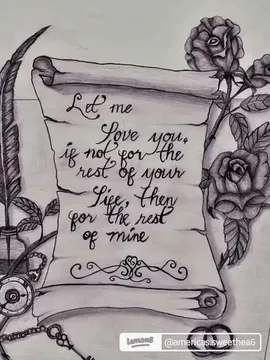 Let me
Love you,
if not for the
rest of your
Life, then
for the rest
of mine
Lemon8
@americas.sweethea6